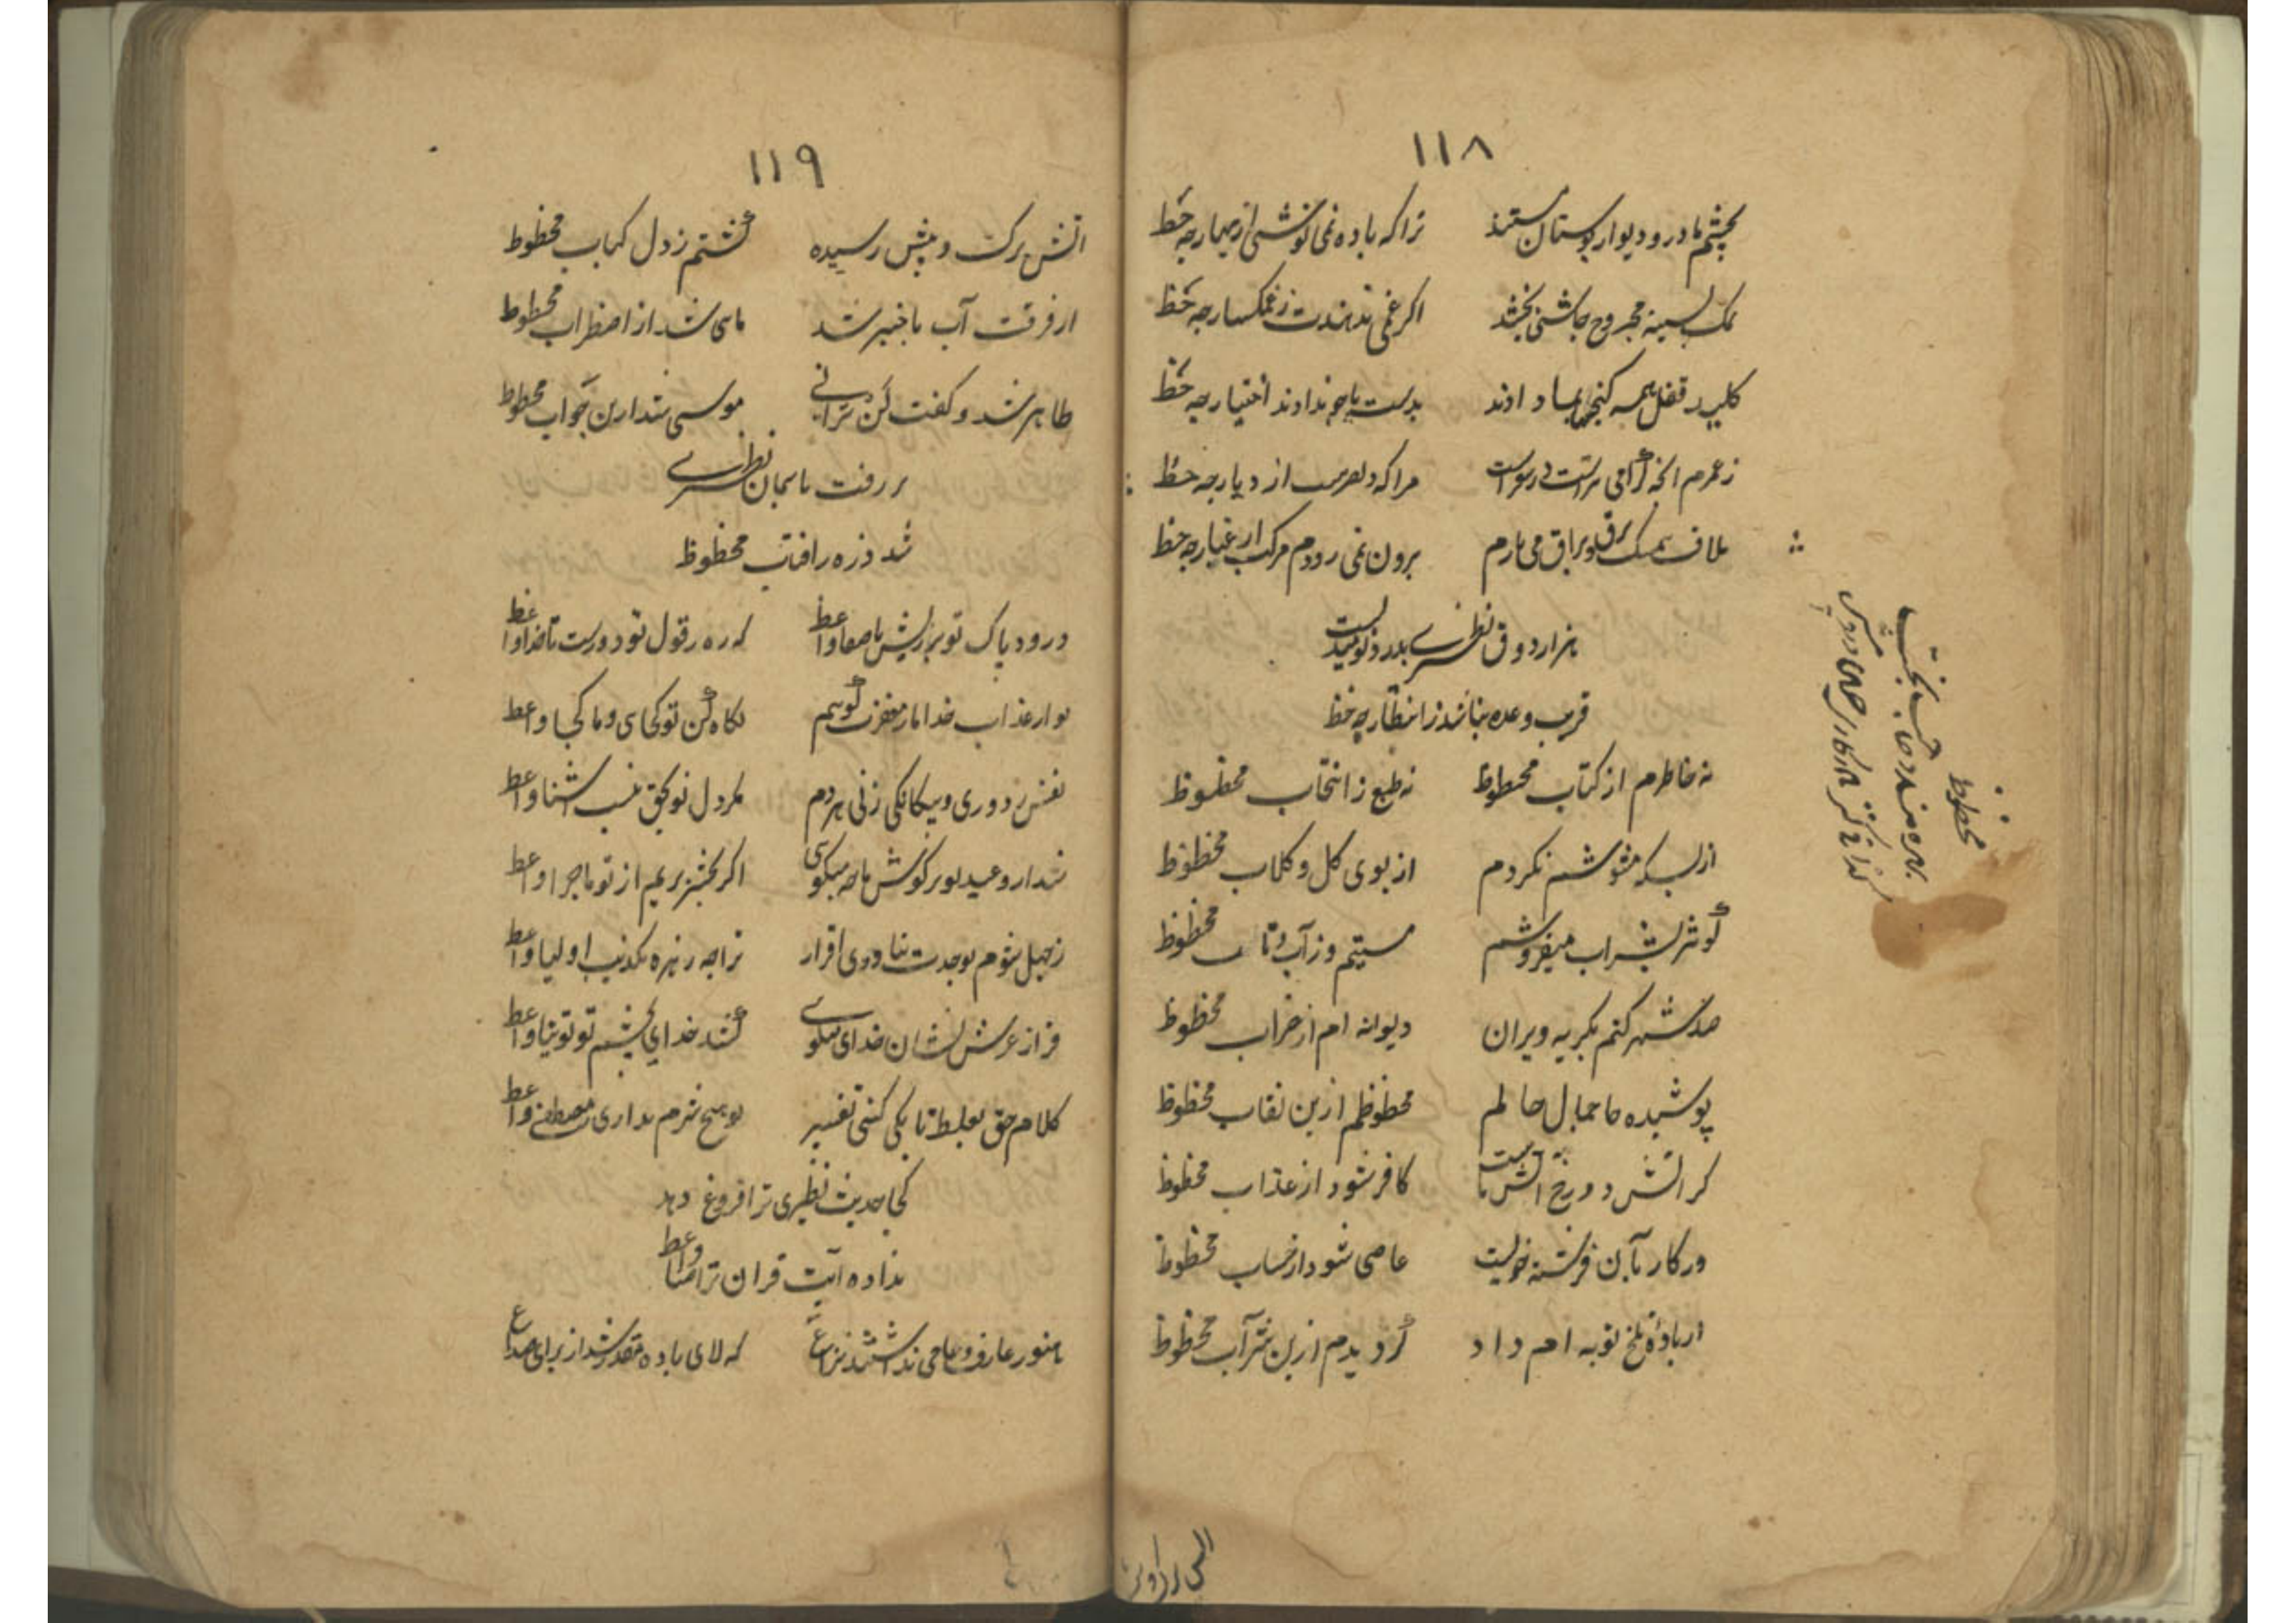 ۱۱۸
بچشم ما در و دیوار بوستان مستند ترا که باده نمی نوشی از بهار چه حظ
نمک بسینه مجروح چاشنی بخشد اکر غمی ندهندت ز غمکسار چه حظ
کلید قفل همه کنجها بما دادند بدست ما چو ندادند اختیار چه حظ
ز عمرم آنچه کرامی تر است در سفر است مرا که دل از دیار چه حظ
ملاف برق و براق می نازم برون نمی رودم مرکب از غبار چه حظ
هزار ذوق نظیری بدرد نومیدیست
فریب وعده نباشد ز انتظار چه حظ
نه خاطرم از کتاب محظوظ نه طبع ز انتخاب محظوظ
از بسکه مشوشم نکردم از بوی کل و کلاب محظوظ
کوثر بشراب میفروشم مستیم و ز آب و تاب محظوظ
صد شهر کنم بکریه ویران دیوانه ام از خراب محظوظ
پوشیده ها جمال حالم محظوظم ازین نقاب محظوظ
کر آتش دوزخ آتش ماست کافر شود از عذاب محظوظ
ور کار بآن فرشته خوییست عاصی شود از حساب محظوظ
از باده تلخ توبه ام داد کردیدم ازین شراب محظوظ
محظوظ
۱۱۹
آتش برکت و پیش رسیده کشتم ز دل کباب محظوظ
از فرقت آب باخبر شد ماهی شد از اضطراب محظوظ
ظاهر شد و کفت لن ترانی موسی شد ازین جواب محظوظ
بر رفت باسمان نظیری
شد ذره ز آفتاب محظوظ
درود پاک تو بر ریش با صفا واعظ که ره ز قول تو دورست تا خدا واعظ
تو از عذاب خدا ما ز مغفرت کوییم نکاه کن تو کجای و ما کجا واعظ
نفس ز دوری و بیکانکی زنی هر دم مکر دل تو بحق نیست آشنا واعظ
ندارد وعید تو بر کوش ما چه میکوی اکر بحشر بریم از تو ماجرا واعظ
ز جهل شوم بوحدت نداده‌ی اقرار ترا چه زهره تکذیب اولیا واعظ
فراز عرش نشان خدای میکوی کشد خدای بچشم تو توتیا واعظ
کلام حق بغلط تا بکی کنی تفسیر تو هیچ شرم نداری ز مصطفی واعظ
کجا حدیث نظیری ترا فروغ دهد
نداده آیت قران ترا ضیا واعظ
هنوز عارف و عامی نداشتند نزاع که لای باده مقدر شد از برای صداع